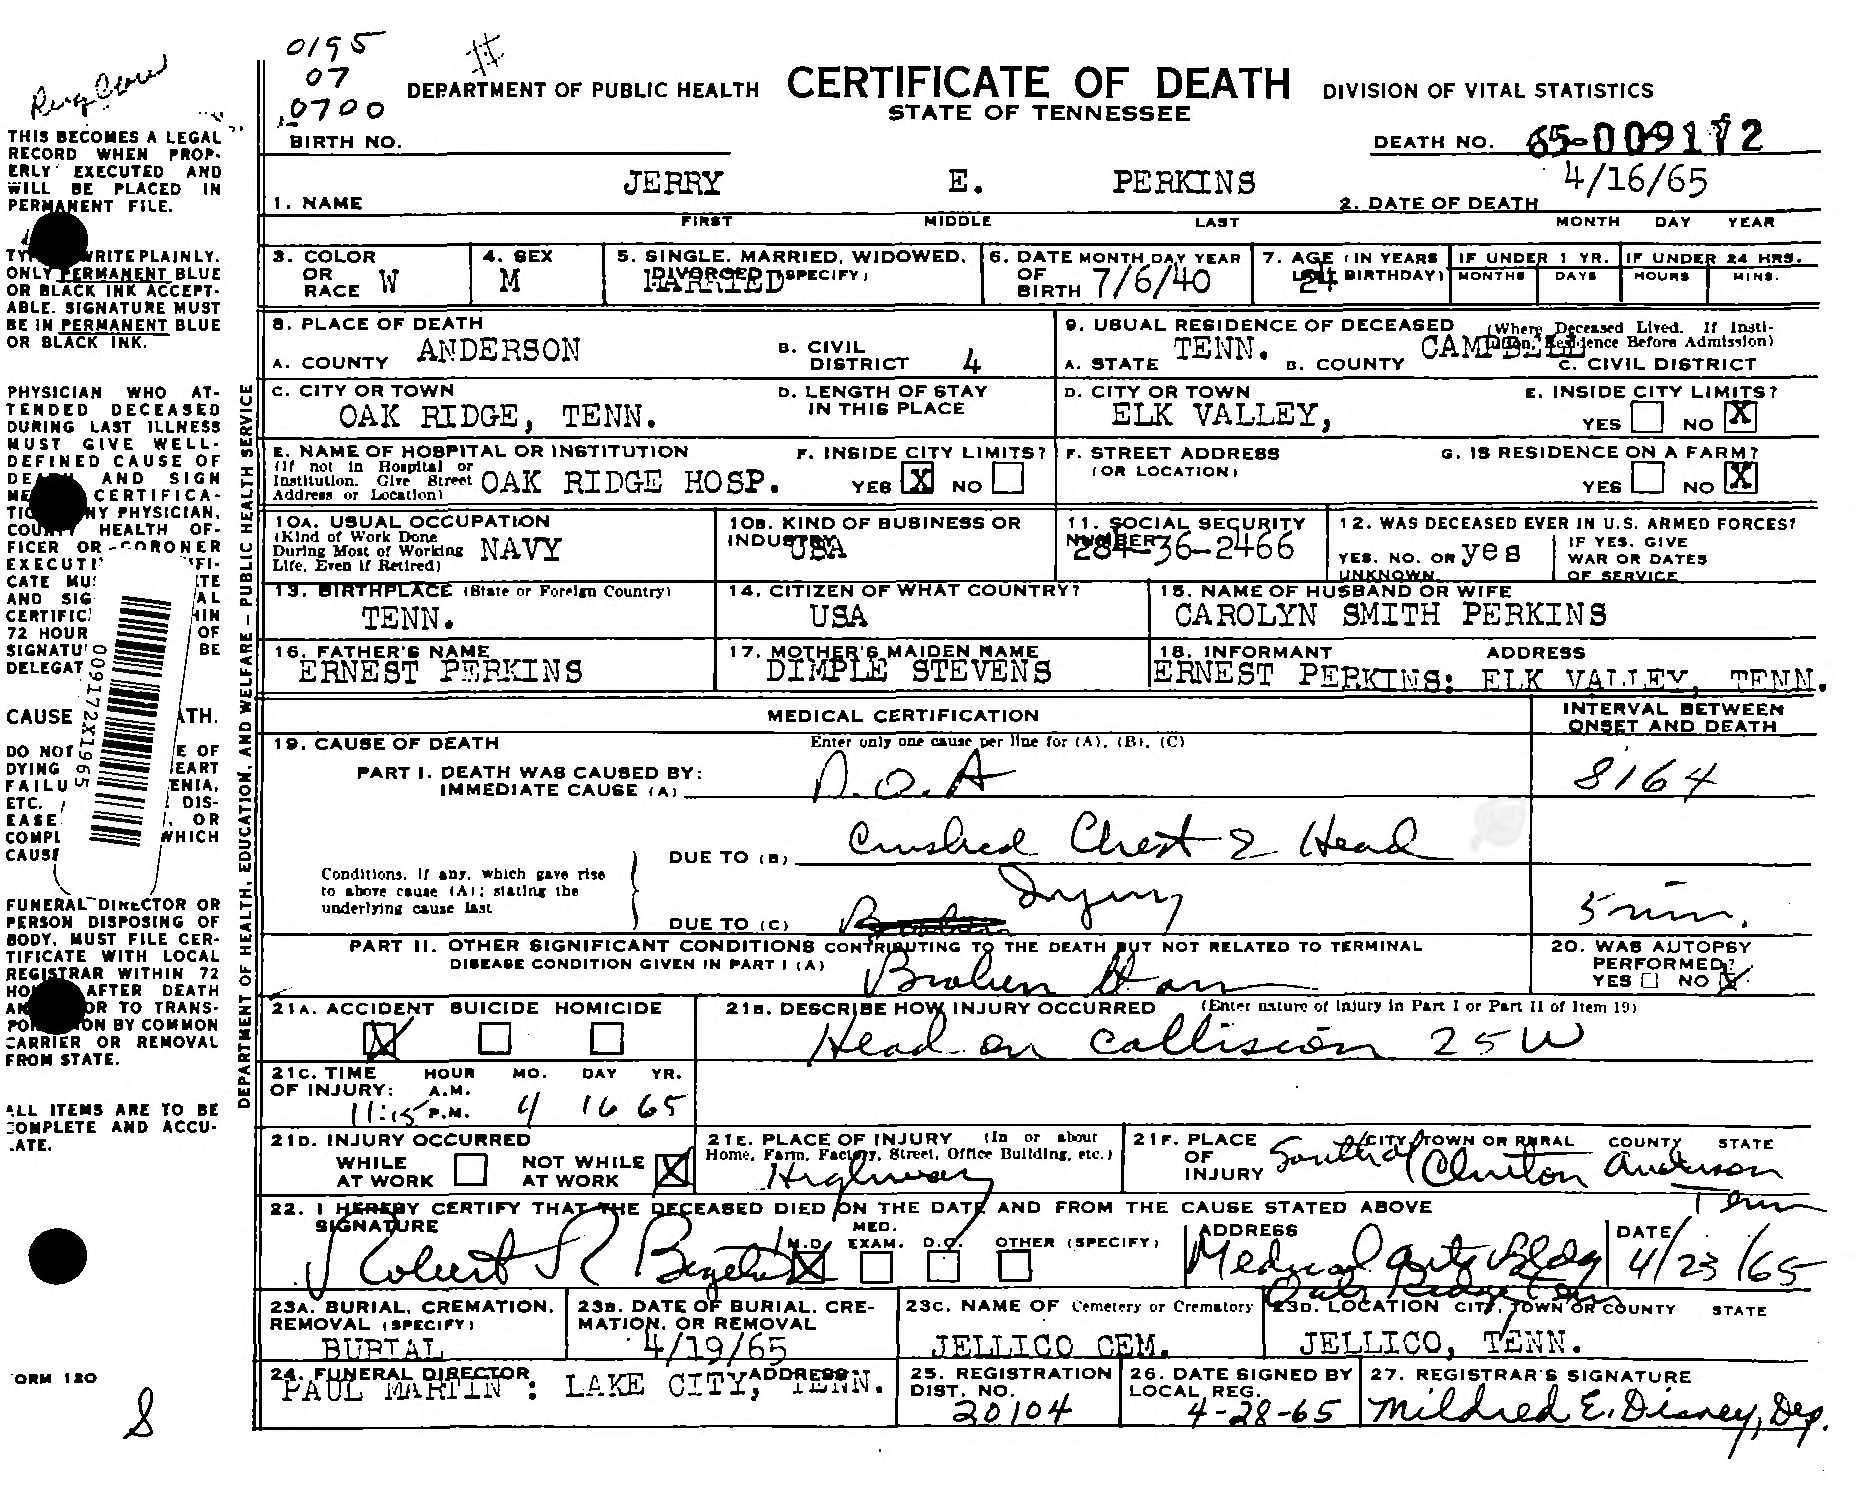 0195
07
0700
Reg Care
DEPARTMENT OF PUBLIC HEALTH CERTIFICATE OF DEATH DIVISION OF VITAL STATISTICS
STATE OF TENNESSEE
BIRTH NO. DEATH NO. 65-009172
1. NAME JERRY E. PERKINS 2. DATE OF DEATH 4/16/65
FIRST MIDDLE LAST MONTH DAY YEAR
3. COLOR OR RACE W 4. SEX M 5. SINGLE, MARRIED, WIDOWED, DIVORCED (SPECIFY) MARRIED 6. DATE OF BIRTH MONTH DAY YEAR 7/6/40 7. AGE (IN YEARS LAST BIRTHDAY) 24 IF UNDER 1 YR. MONTHS DAYS IF UNDER 24 HRS. HOURS MINS.
8. PLACE OF DEATH
A. COUNTY ANDERSON B. CIVIL DISTRICT 4
9. USUAL RESIDENCE OF DECEASED (Where Deceased Lived. If Institution, Residence Before Admission)
A. STATE TENN. B. COUNTY CAMPBELL C. CIVIL DISTRICT
C. CITY OR TOWN OAK RIDGE, TENN. D. LENGTH OF STAY IN THIS PLACE
D. CITY OR TOWN ELK VALLEY, E. INSIDE CITY LIMITS? YES NO X
E. NAME OF HOSPITAL OR INSTITUTION (If not in Hospital or Institution, Give Street Address or Location) OAK RIDGE HOSP. F. INSIDE CITY LIMITS? YES X NO
F. STREET ADDRESS (OR LOCATION) G. IS RESIDENCE ON A FARM? YES NO X
10A. USUAL OCCUPATION (Kind of Work Done During Most of Working Life, Even if Retired) NAVY 10B. KIND OF BUSINESS OR INDUSTRY USA 11. SOCIAL SECURITY NUMBER 284-36-2466 12. WAS DECEASED EVER IN U.S. ARMED FORCES? YES, NO, OR UNKNOWN yes IF YES, GIVE WAR OR DATES OF SERVICE
13. BIRTHPLACE (State or Foreign Country) TENN. 14. CITIZEN OF WHAT COUNTRY? USA 15. NAME OF HUSBAND OR WIFE CAROLYN SMITH PERKINS
16. FATHER'S NAME ERNEST PERKINS 17. MOTHER'S MAIDEN NAME DIMPLE STEVENS 18. INFORMANT ADDRESS ERNEST PERKINS: ELK VALLEY, TENN.
MEDICAL CERTIFICATION INTERVAL BETWEEN ONSET AND DEATH
19. CAUSE OF DEATH Enter only one cause per line for (A), (B), (C)
PART I. DEATH WAS CAUSED BY: IMMEDIATE CAUSE (A) D.O.A 8164
DUE TO (B) Crushed Chest & Head
Conditions, if any, which gave rise to above cause (A); stating the underlying cause last
DUE TO (C) Injury 5 min.
PART II. OTHER SIGNIFICANT CONDITIONS CONTRIBUTING TO THE DEATH BUT NOT RELATED TO TERMINAL DISEASE CONDITION GIVEN IN PART I (A) Broken
20. WAS AUTOPSY PERFORMED? YES NO X
21A. ACCIDENT X SUICIDE HOMICIDE
21B. DESCRIBE HOW INJURY OCCURRED (Enter nature of injury in Part I or Part II of Item 19) Head on Collision 25W
21C. TIME OF INJURY: HOUR MO. DAY YR. A.M. P.M. 11:15 4 16 65
21D. INJURY OCCURRED WHILE AT WORK NOT WHILE AT WORK X
21E. PLACE OF INJURY (In or about Home, Farm, Factory, Street, Office Building, etc.) Highway
21F. PLACE OF INJURY CITY, TOWN OR RURAL COUNTY STATE South of Clinton Anderson Tenn
22. I HEREBY CERTIFY THAT THE DECEASED DIED ON THE DATE AND FROM THE CAUSE STATED ABOVE
SIGNATURE Robert R M.D. X MED. EXAM. D.O. OTHER (SPECIFY) ADDRESS Medical Arts Bldg Oak Ridge Tenn DATE 4/23/65
23A. BURIAL, CREMATION, REMOVAL (SPECIFY) BURIAL 23B. DATE OF BURIAL, CREMATION, OR REMOVAL 4/19/65 23C. NAME OF Cemetery or Crematory JELLICO CEM. 23D. LOCATION CITY, TOWN OR COUNTY STATE JELLICO, TENN.
24. FUNERAL DIRECTOR ADDRESS PAUL MARTIN: LAKE CITY, TENN. 25. REGISTRATION DIST. NO. 20104 26. DATE SIGNED BY LOCAL REG. 4-28-65 27. REGISTRAR'S SIGNATURE Mildred E. Disney, Dep.
THIS BECOMES A LEGAL
RECORD WHEN PROP-
ERLY EXECUTED AND
WILL BE PLACED IN
PERMANENT FILE.
WRITE PLAINLY.
ONLY PERMANENT BLUE
OR BLACK INK ACCEPT-
ABLE. SIGNATURE MUST
BE IN PERMANENT BLUE
OR BLACK INK.
PHYSICIAN WHO AT-
TENDED DECEASED
DURING LAST ILLNESS
MUST GIVE WELL-
DEFINED CAUSE OF
DEATH AND SIGN
CERTIFICA-
ANY PHYSICIAN,
COUNTY HEALTH OF-
FICER OR CORONER
72 HOUR OF
BE
DELEGAT
009172X1965
CAUSE ATH.
DO NOT E OF
DYING EART
FAILU ENIA,
ETC. DIS-
EASE , OR
COMPL WHICH
CAUSE
FUNERAL DIRECTOR OR
PERSON DISPOSING OF
BODY, MUST FILE CER-
TIFICATE WITH LOCAL
REGISTRAR WITHIN 72
HO AFTER DEATH
AN OR TO TRANS-
PO ON BY COMMON
CARRIER OR REMOVAL
FROM STATE.
ALL ITEMS ARE TO BE
COMPLETE AND ACCU-
RATE.
DEPARTMENT OF HEALTH, EDUCATION, AND WELFARE - PUBLIC HEALTH SERVICE
ORM 120
8